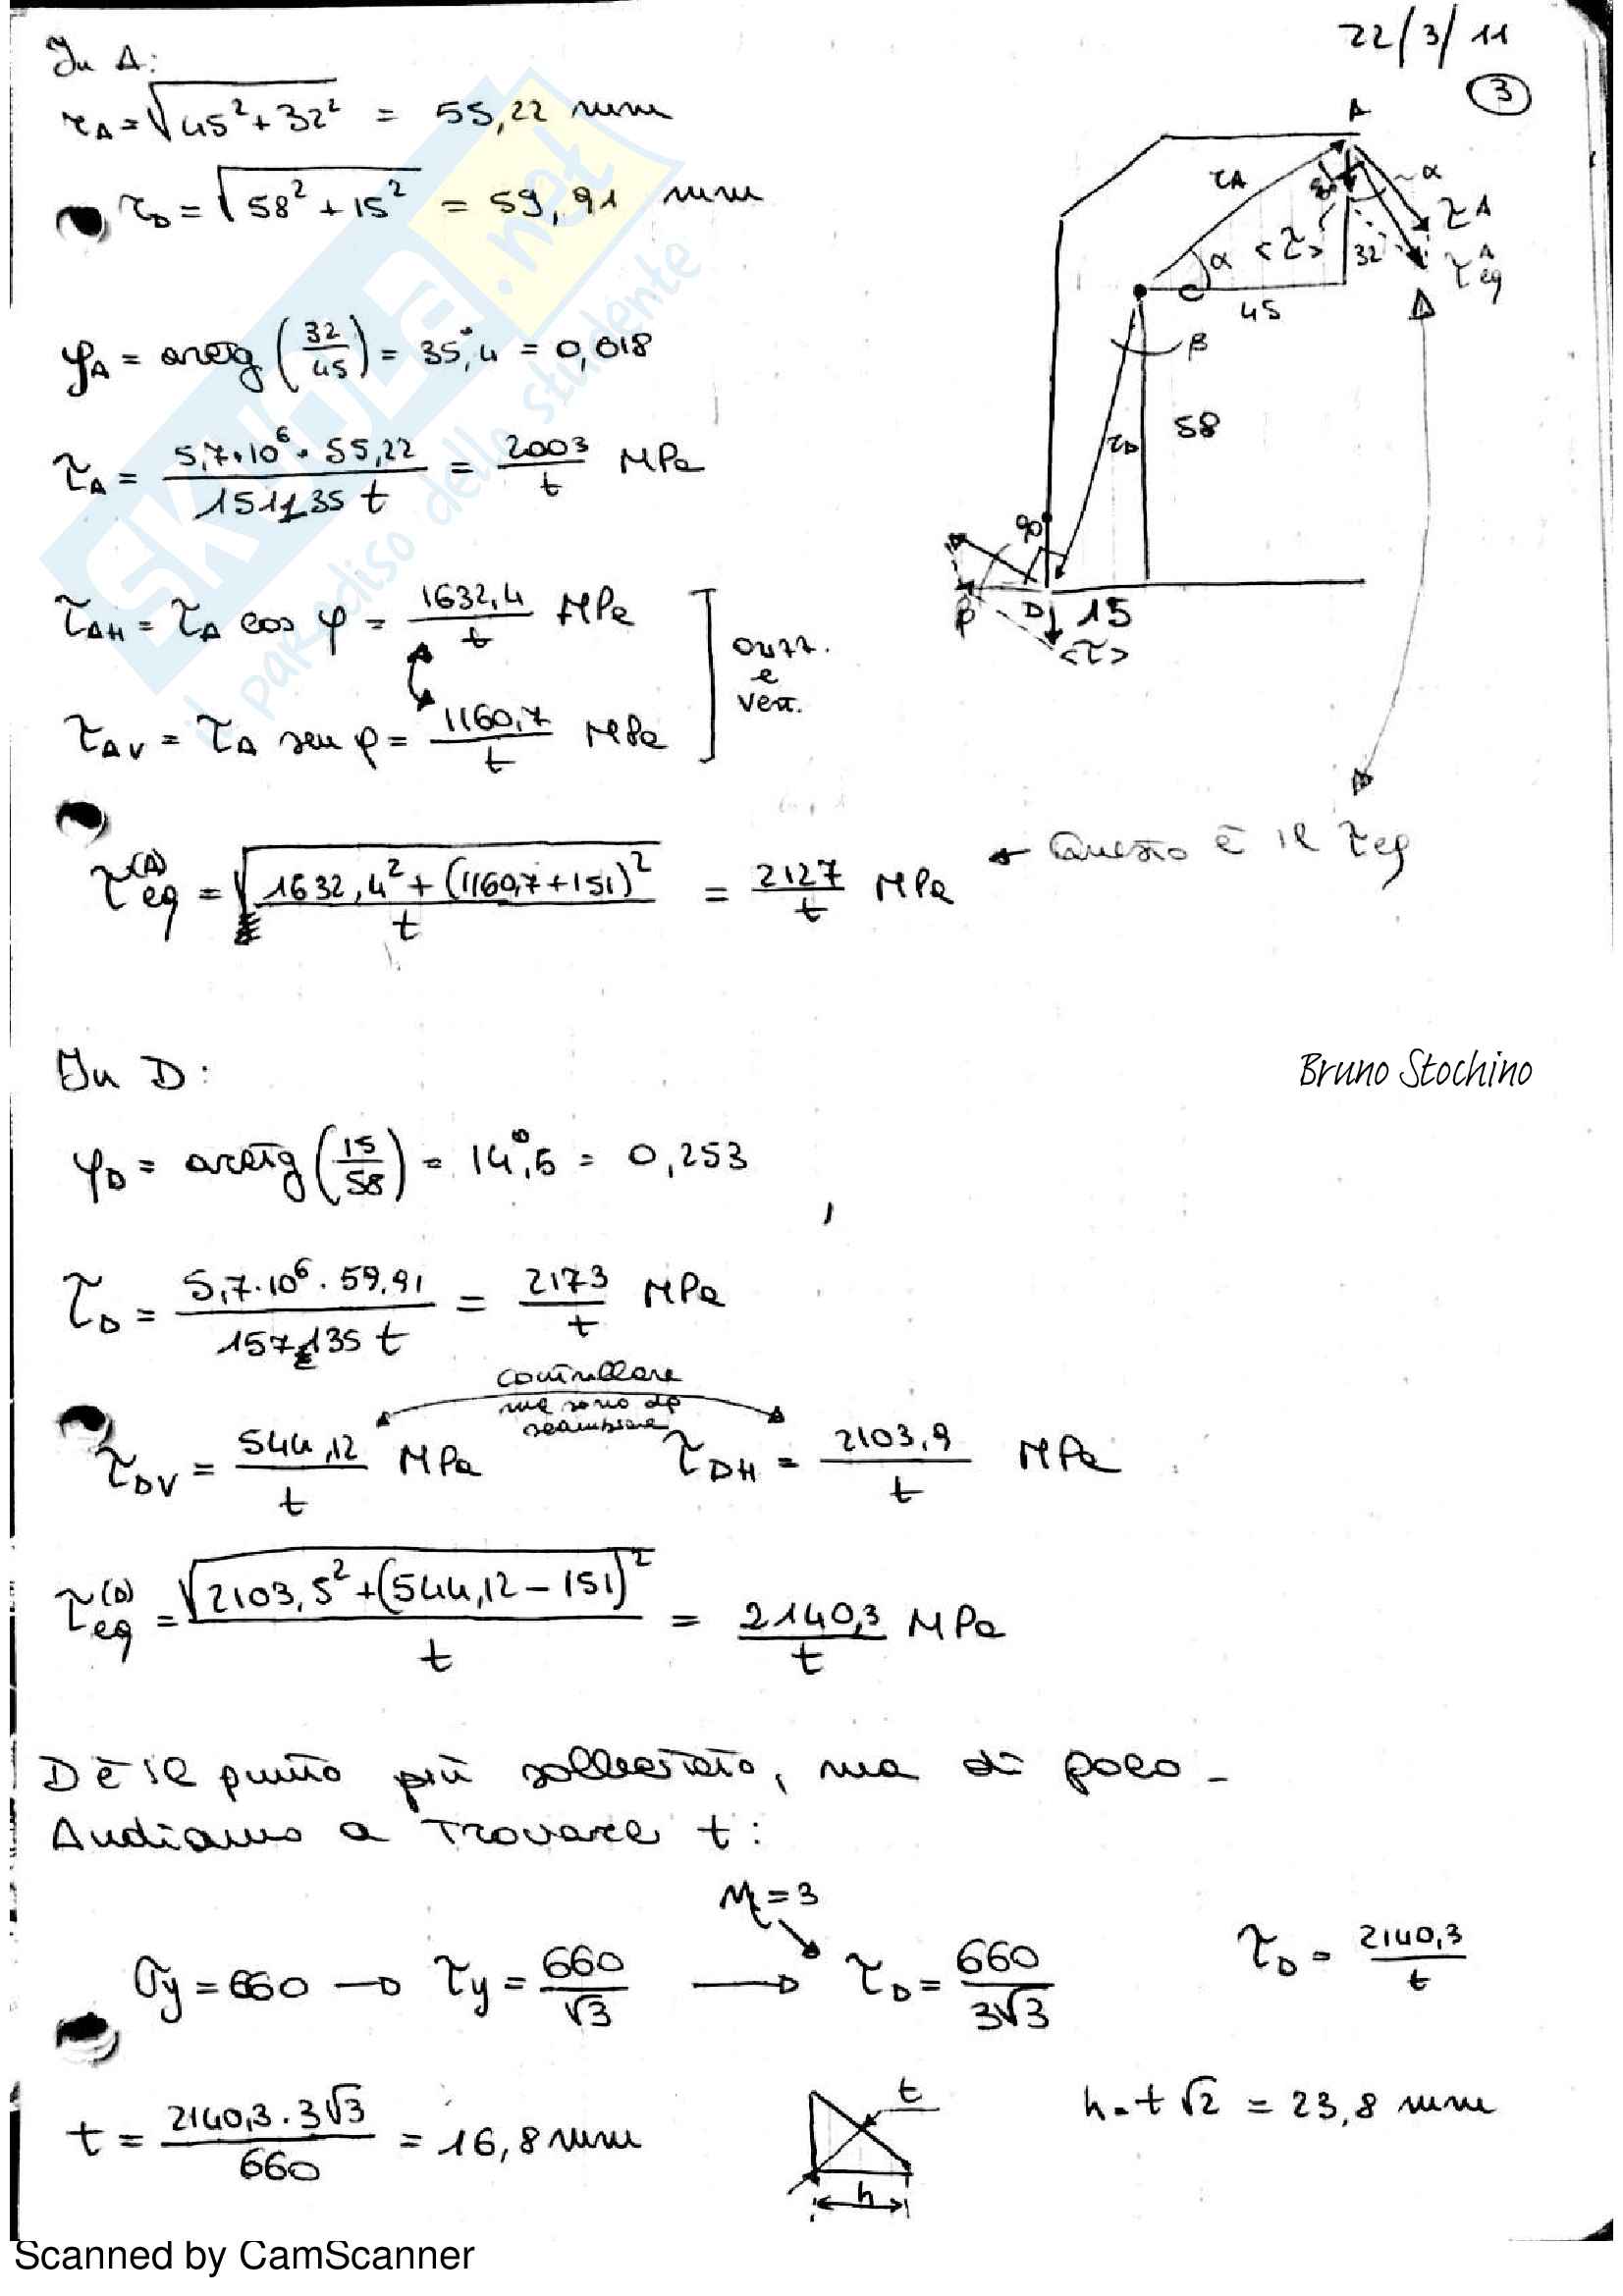 22/3/11
3
In A:
r_A = √(45² + 32²) = 55,22 mm
r_D = √(58² + 15²) = 59,91 mm
φ_A = arctg (32/45) = 35°,4 = 0,618
τ_A = 5,7·10⁶ · 55,22 / 151135 t = 2003/t MPa
τ_AH = τ_A cos φ = 1632,4/t MPa
orizz. e vert.
τ_AV = τ_A sen φ = 1160,7/t MPa
τ_eq^(A) = √(1632,4² + (1160,7 + 151)²) / t = 2127/t MPa ← Questo è il τ_eq
A
r_A
90
α
τ_A
<τ>
32
τ_eq^A
α
45
β
r_D
58
90
β
D
15
<τ>
In D:
Bruno Stochino
φ_D = arctg (15/58) = 14°,5 = 0,253
τ_D = 5,7·10⁶ · 59,91 / 157135 t = 2173/t MPa
controllare
ma sono da
scambiare
τ_DV = 544,12/t MPa τ_DH = 2103,9/t MPa
τ_eq^(D) = √(2103,5² + (544,12 − 151)²) / t = 2140,3/t MPa
D è il punto più sollecitato, ma di poco -
Andiamo a trovare t:
η = 3
σ_y = 660 → τ_y = 660/√3 → τ_D = 660/3√3 τ_D = 2140,3/t
t = 2140,3 · 3√3 / 660 = 16,8 mm
t
h
h = t √2 = 23,8 mm
SKUOLA.net
il paradiso dello studente
Scanned by CamScanner